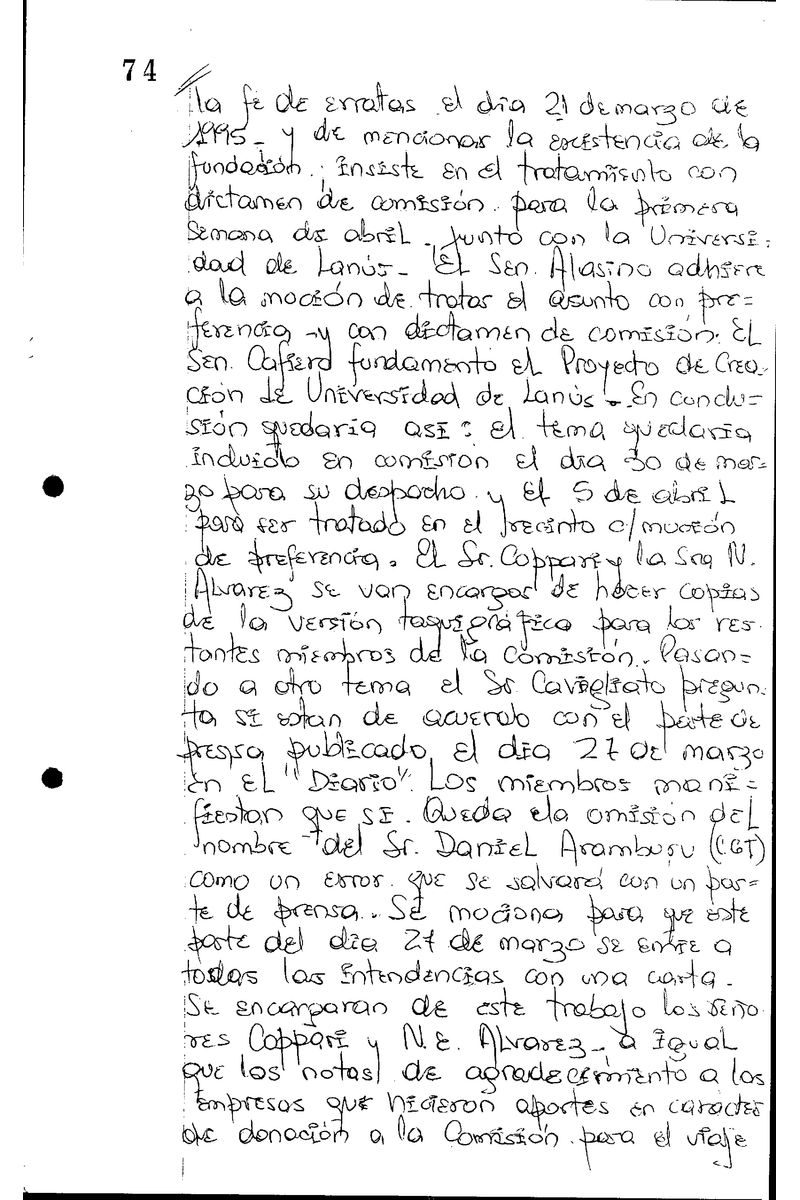 74
la fe de erratas el día 21 de marzo de
1995- y de mencionar la existencia de la
fundación. insiste en el tratamiento con
dictamen de comisión para la primera
semana de abril. junto con la Universi-
dad de Lanús- El Sen. Alasino adhiere
a la moción de tratar el asunto con pre=
ferencia -y con dictamen de comisión. El
Sen. Cafiero fundamento el Proyecto de Crea-
ción de Universidad de Lanús-. En conclu=
sión quedaria asi: el tema quedaria
incluido en comisión el dia 30 de mar-
zo para su despacho y el 5 de abril
para ser tratado en el recinto c/moción
de preferencia. El Sr. Coppari y la Sra N.
Alvarez se van encargar de hacer copias
de la versión taquigráfica para los res-
tantes miembros de la Comisión. Pasan=
do a otro tema el Sr. Cavigliato pregun-
ta si estan de acuerdo con el parte de
prensa publicado el dia 27 de marzo
en El "Diario". Los miembros mani=
fiestan que si. Queda la omisión del
nombre del Sr. Daniel Aramburu (CGT)
como un error que se salvará con un par=
te de prensa. Se mociona para que este
parte del dia 27 de marzo se envie a
todas las intendencias con una carta.
Se encargaran de este trabajo los seño
res Coppari y N.E. Alvarez- a igual
que las notas de agradecimiento a las
empresas que hicieron aportes en caracter
de donación a la Comisión para el viaje